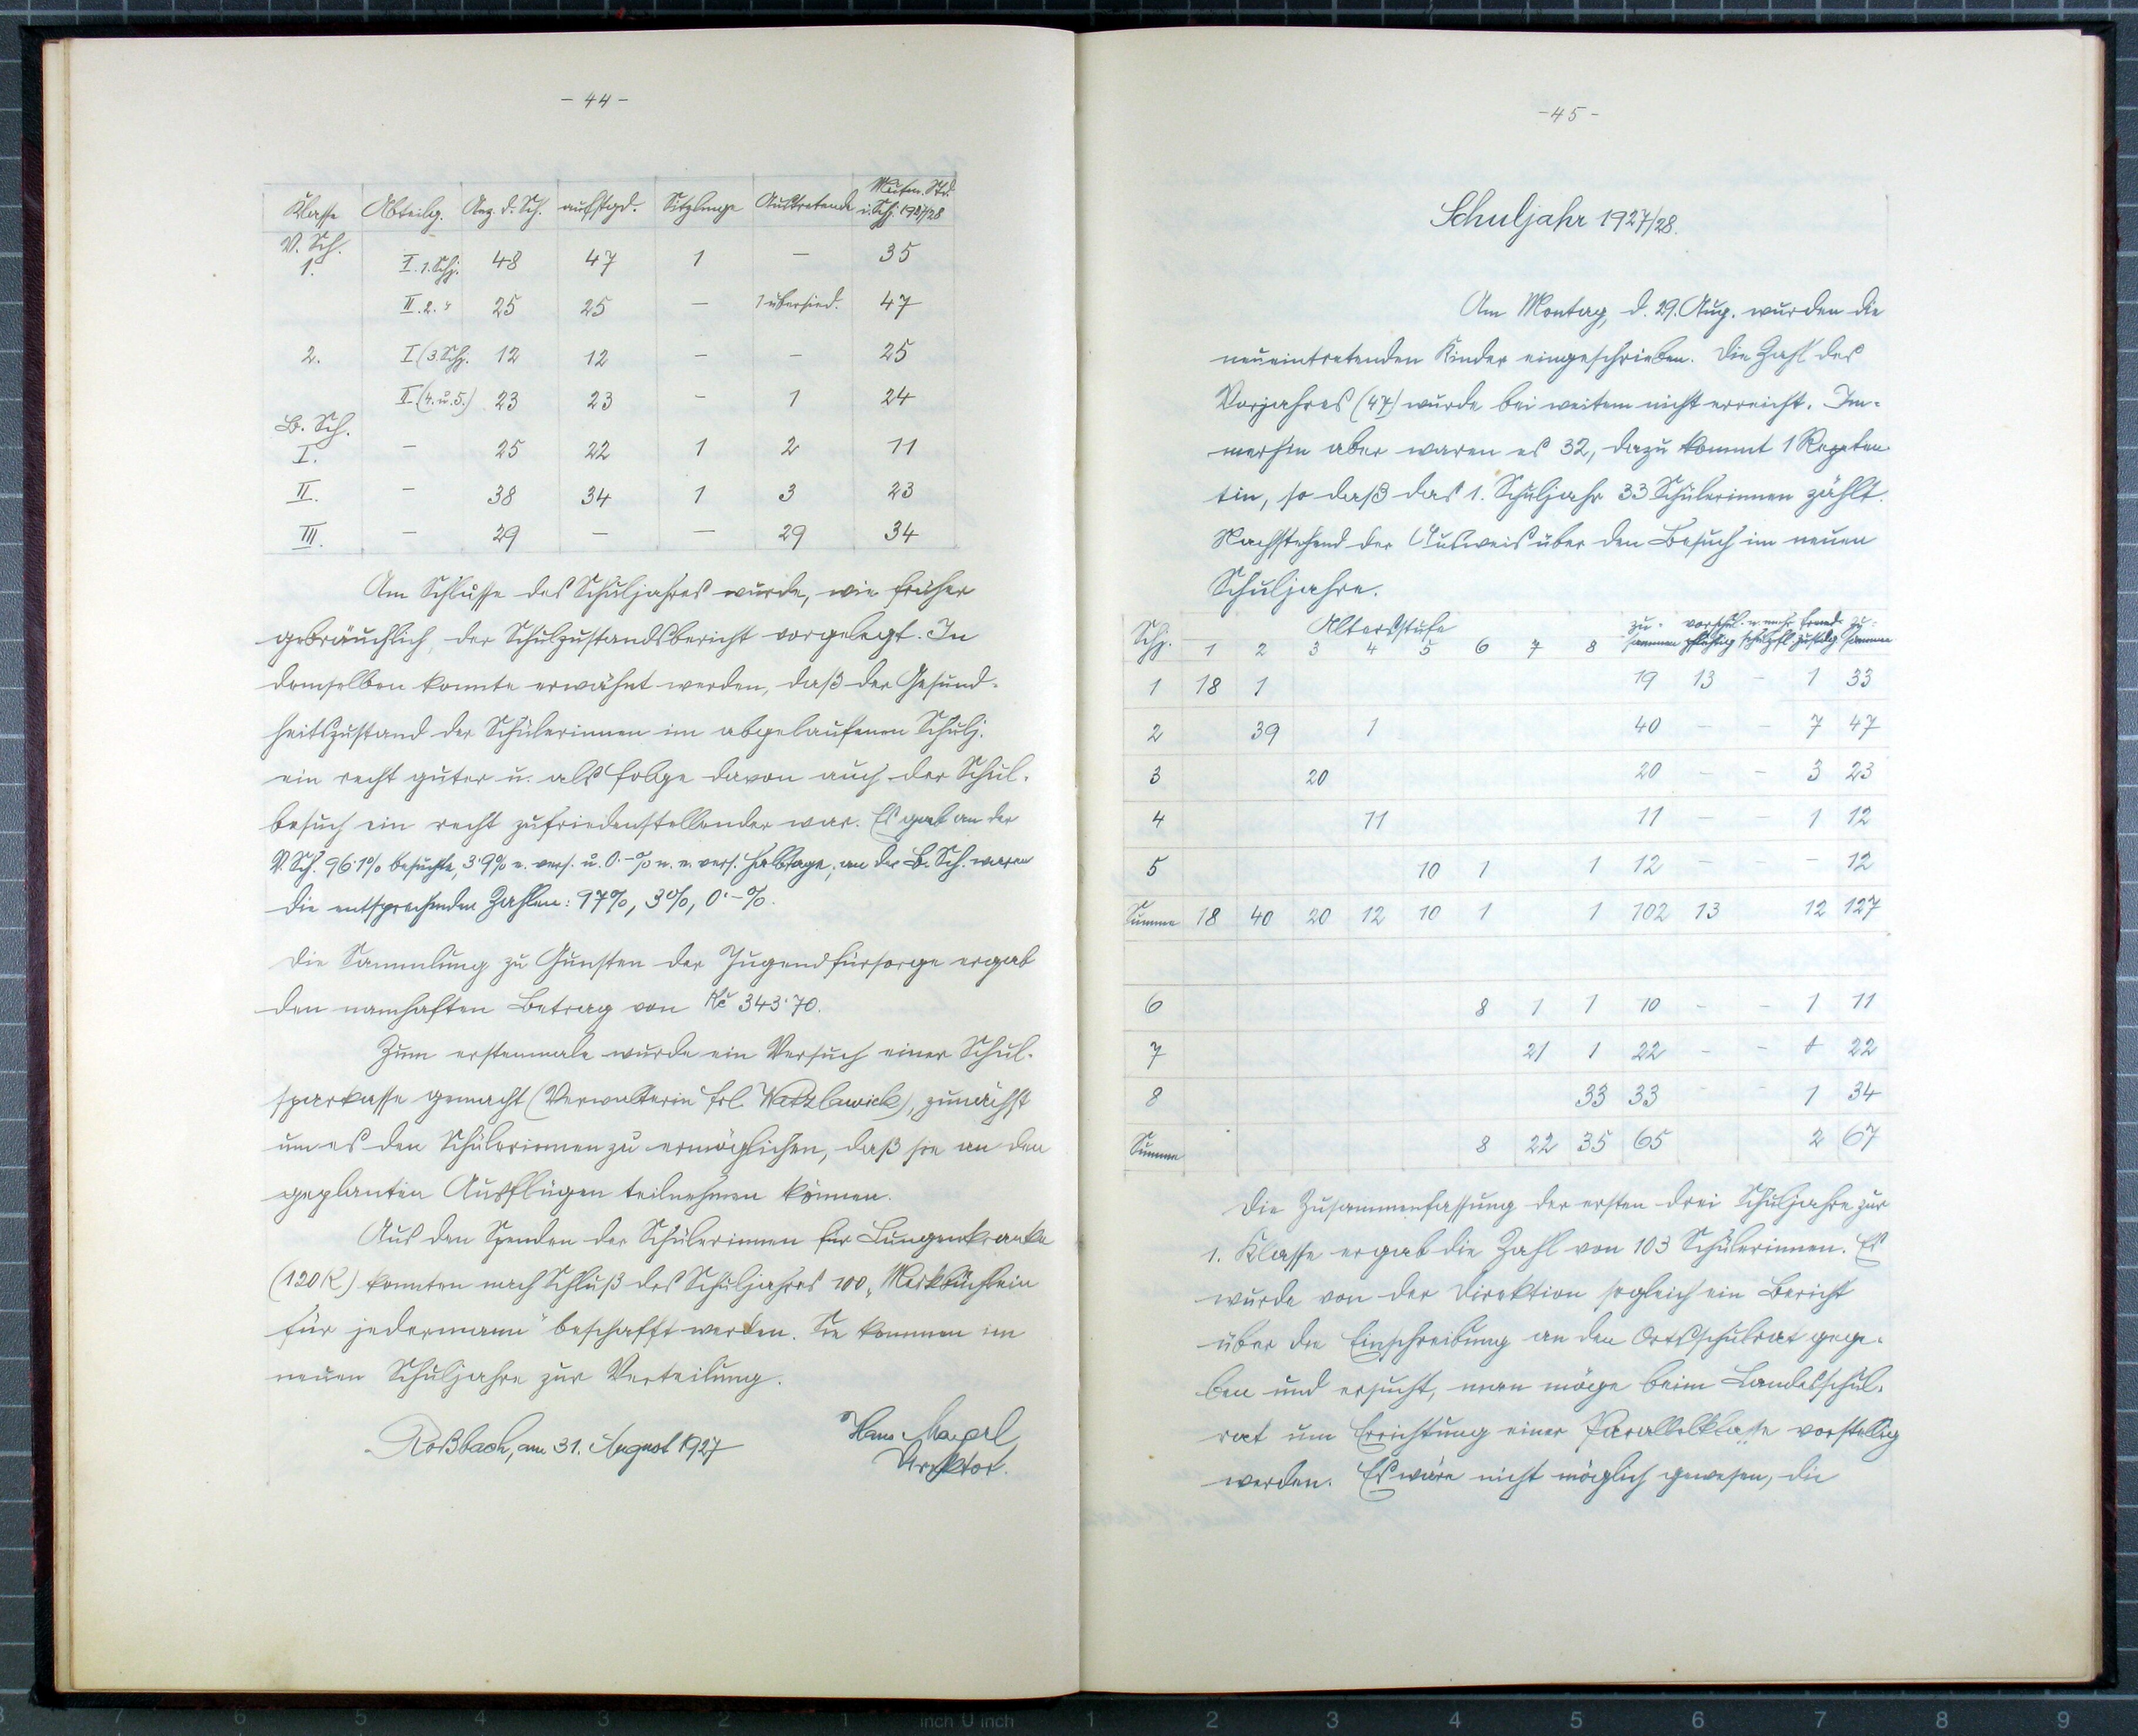 - 44 -
Klasse Abteilg. Anz. d. Sch. aufstgd. Sitzlinge Austretende i. Schj. 1927/28
V. Sch.
1. I. 1. Schj. 48 47 1 — 35
II. 2. " 25 25 — 1 übersied. 47
2. I (3. Schj. 12 12 — — 25
II. (4. u. 5.) 23 23 — 1 24
B. Sch.
I. — 25 22 1 2 11
II. — 38 34 1 3 23
III. — 29 — — 29 34
Am Schlusse des Schuljahres wurde, wie früher
gebräuchlich, der Schulzustandsbericht vorgelegt. In
demselben konnte erwähnt werden, daß der Gesund-
heitszustand der Schülerinnen im abgelaufenen Schulj.
ein recht guter u. als Folge davon auch der Schul-
besuch ein recht zufriedenstellender war. Es gab an der
V. Sch. 96·1% besuchte, 3·9% e. vers. u. 0·-% n. e. vers. Halbtage; an der B. Sch. waren
die entsprechenden Zahlen: 97%, 3%, 0·-%.
Die Sammlung zu Gunsten der Jugendfürsorge ergab
den namhaften Betrag von Kč 343·70.
Zum erstenmale wurde ein Versuch einer Schul-
sparkasse gemacht (Verwalterin Frl. Watzlawick), zunächst
um es den Schülerinnen zu ermöglichen, daß sie an den
geplanten Ausflügen teilnehmen können.
Aus den Spenden der Schülerinnen für Lungenkranke
(120 K) konnten nach Schluß des Schuljahres 100 „Merkbüchlein
für jedermann" beschafft werden. Sie kommen im
neuen Schuljahre zur Verteilung.
Roßbach, am 31. August 1927
Hans
Direktor.
- 45 -
Schuljahr 1927/28.
Am Montag, d. 29. Aug. wurden die
neueintretenden Kinder eingeschrieben. Die Zahl des
Vorjahres (47) wurde bei weitem nicht erreicht. Im-
merhin aber waren es 32, dazu kommt 1 Repeten-
tin, so daß das 1. Schuljahr 33 Schülerinnen zählt.
Nachstehend der Ausweis über den Besuch im neuen
Schuljahre.
Schj. Altersstufe zu- vorschul- n. mehr fremd- zu-
1 2 3 4 5 6 7 8 sammen pflichtig schulpfl. zustdg. sammen
1 18 1 19 13 — 1 33
2 39 1 40 — — 7 47
3 20 20 — — 3 23
4 11 11 — — 1 12
5 10 1 1 12 — — — 12
Summe 18 40 20 12 10 1 1 102 13 12 127
6 8 1 1 10 — — 1 11
7 21 1 22 — — 22
8 33 33 — — 1 34
Summe 8 22 35 65 2 67
Die Zusammenfassung der ersten drei Schuljahre zur
1. Klasse ergab die Zahl von 103 Schülerinnen. Es
wurde von der Direktion sogleich ein Bericht
über die Einschreibung an den Ortsschulrat gege-
ben und ersucht, man möge beim Landesschul-
rat um Errichtung einer Parallelklasse vorstellig
werden. Es wäre nicht möglich gewesen, die
7 6 5 4 3 2 1 inch 0 inch 1 2 3 4 5 6 7 8 9